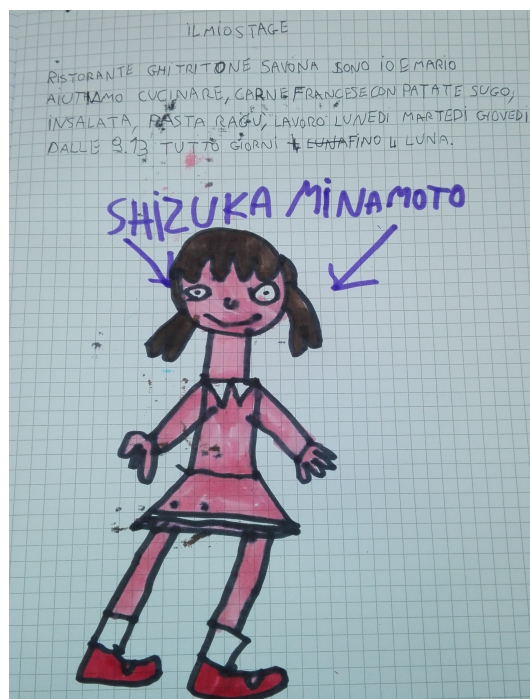 IL MIO STAGE
RISTORANTE GHI TRITONE SAVONA SONO IO E MARIO
AIUTIAMO CUCINARE, CARNE FRANCESE CON PATATE SUGO,
INSALATA, PASTA RAGU, LAVORO LUNEDI MARTEDI GIOVEDI
DALLE 9.13 TUTTO GIORNI FINO 4 LUNA.
SHIZUKA MINAMOTO